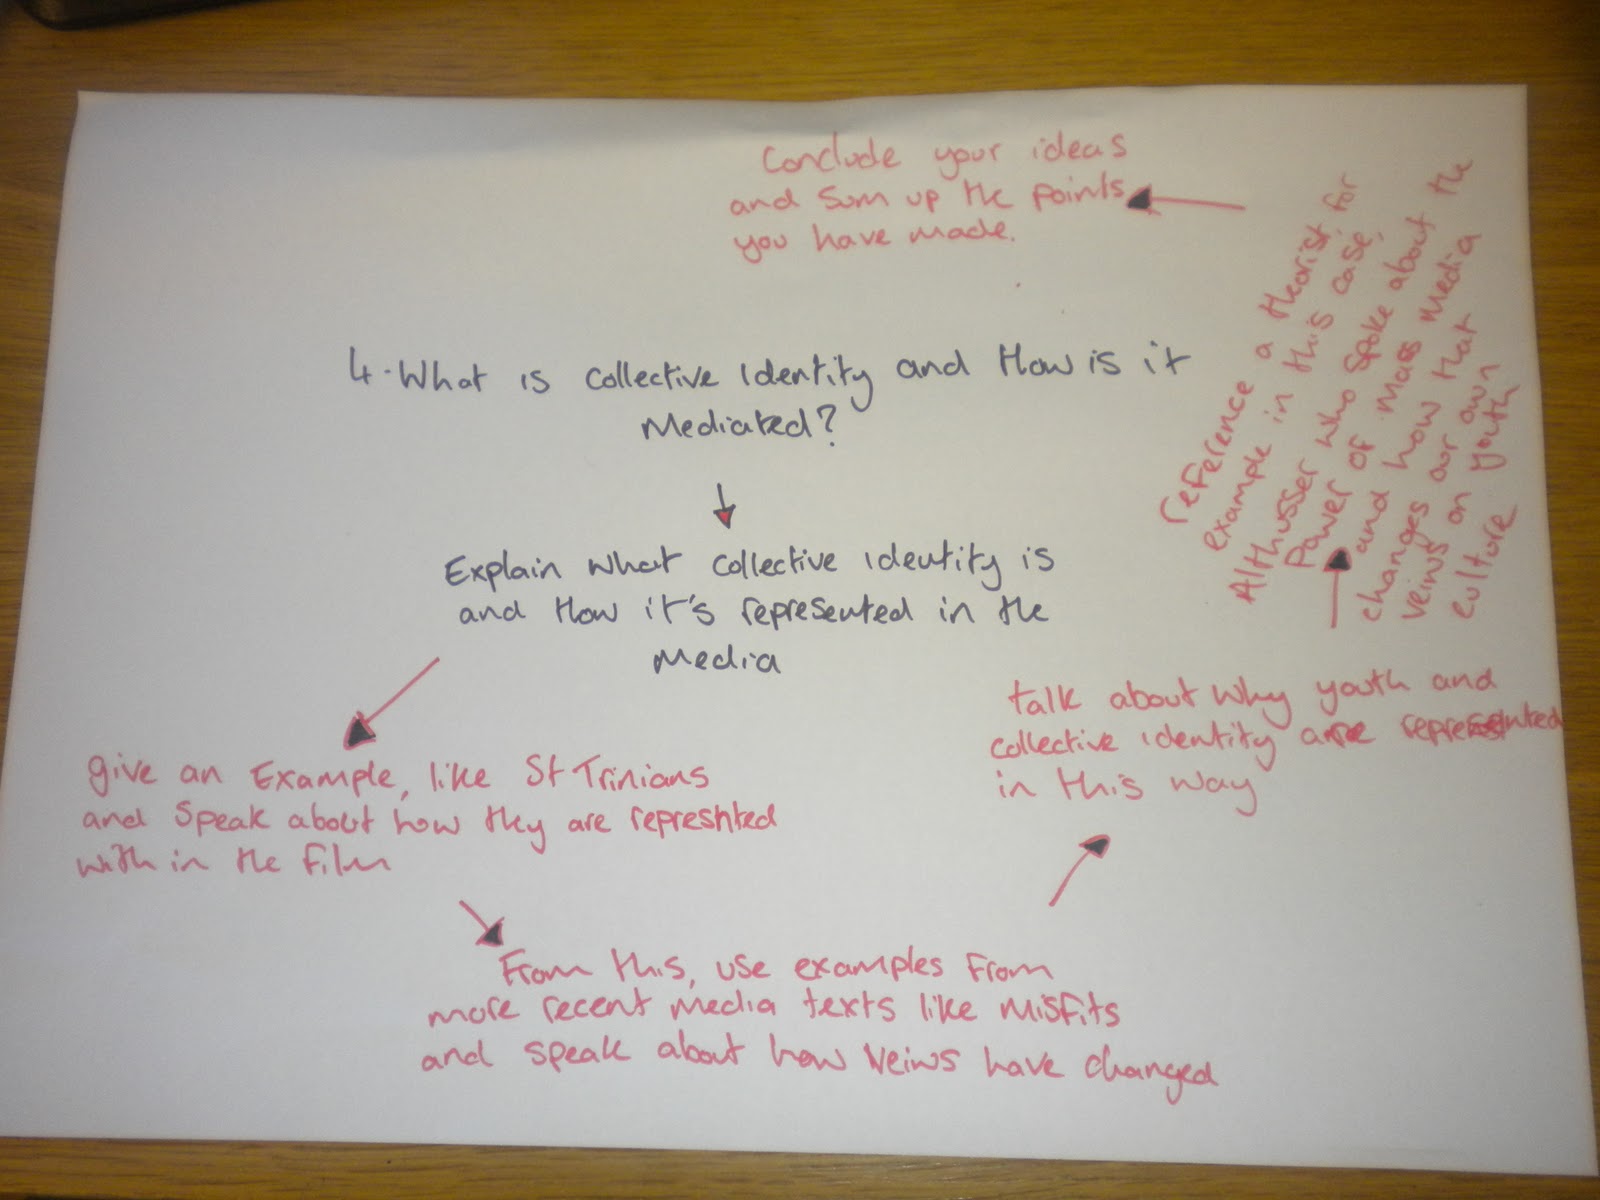 4. What is collective Identity and How is it
Mediated?
Explain what collective Identity is
and How it's represented in the
Media
give an Example, like St Trinians
and speak about how they are represnted
with in the film
From this, use examples from
more recent media texts like misfits
and speak about how veiws have changed
talk about why youth and
collective identity are represented
in this way
reference a theorist, for
example in this case,
Althusser who spoke about the
power of mass media
and how that
changes our own
veiws on youth
culture
Conclude your ideas
and sum up the points
you have made.